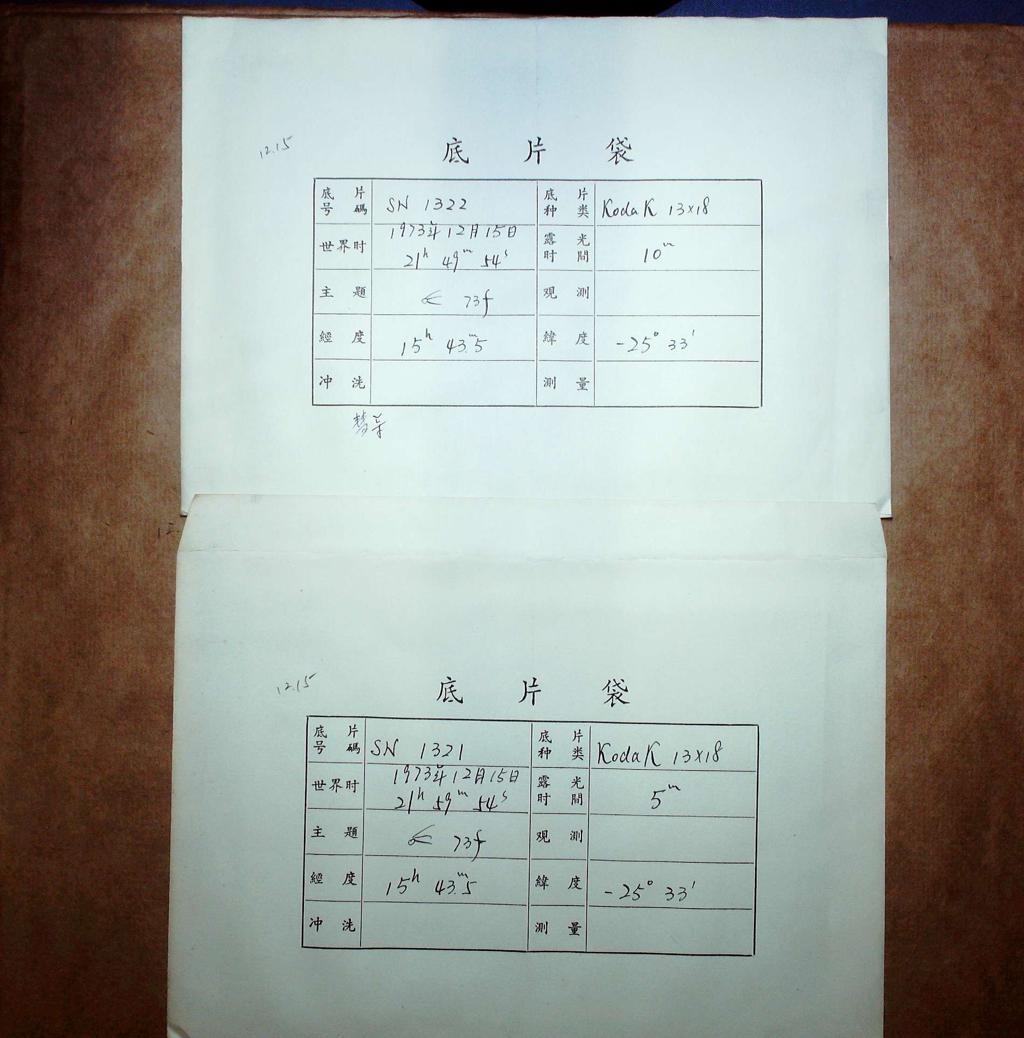 12.15
底片袋
底片号碼 SN 1322 底片种类 Kodak 13×18
世界时 1973年12月15日 21ʰ 49ᵐ 54ˢ 露光时間 10ᵐ
主題 73f 观測
經度 15ʰ 43ᵐ.5 緯度 -25° 33′
冲洗 测量
12.15
底片袋
底片号碼 SN 1321 底片种类 Kodak 13×18
世界时 1973年12月15日 21ʰ 59ᵐ 54ˢ 露光时間 5ᵐ
主題 73f 观測
經度 15ʰ 43ᵐ.5 緯度 -25° 33′
冲洗 测量